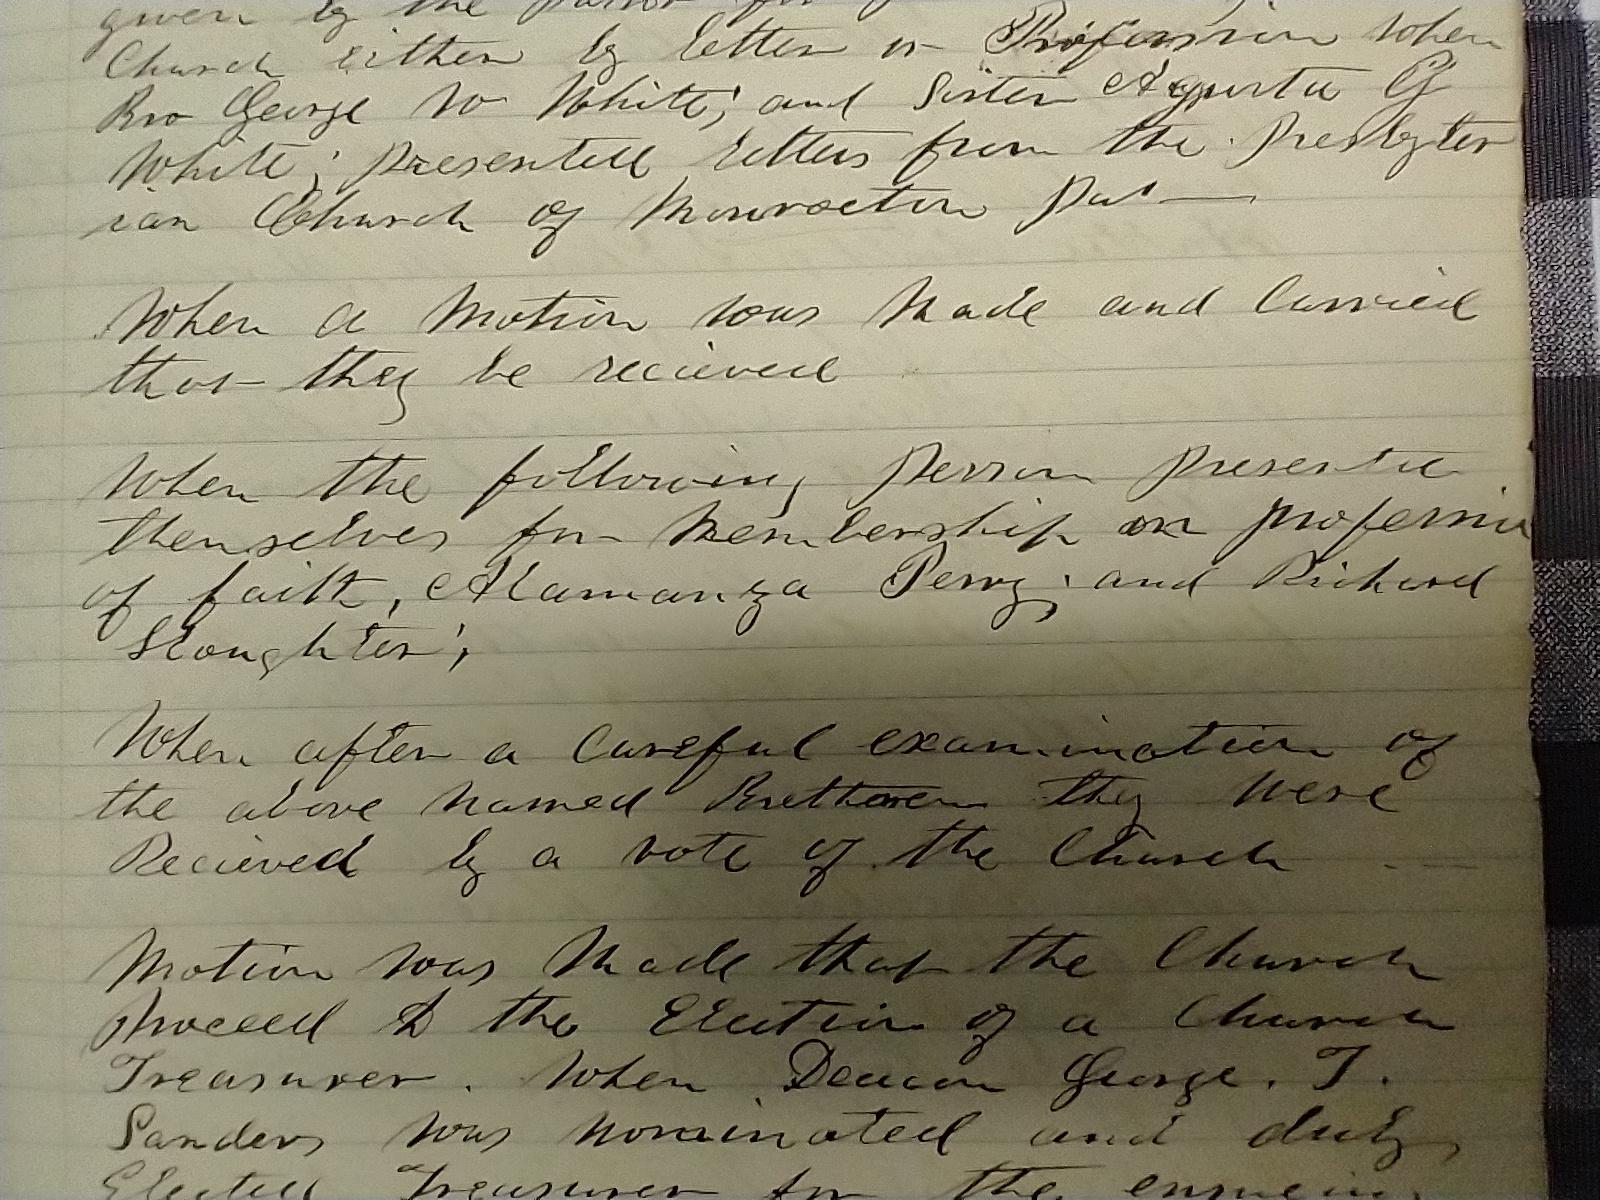 given by the pastor for
Church either by letter or Profession when
Bro George W White; and Sister Agusta G
White; presented letters from the Presbyter
ian Church of Monroeton Pa
When a Motion was Made and Carried
that they be recieved
When the following person presente
themselves for Membership on profession
of faith, Alamanza Perry; and Richard
Sloughter;
When after a Careful examination of
the above named Bretheren they were
Recieved by a vote of the Church
Motion was Made that the Church
Proceed to the Election of a Church
Treasurer. When Deacon George. T.
Sanders was nominated and duly
Elected Treasurer for the